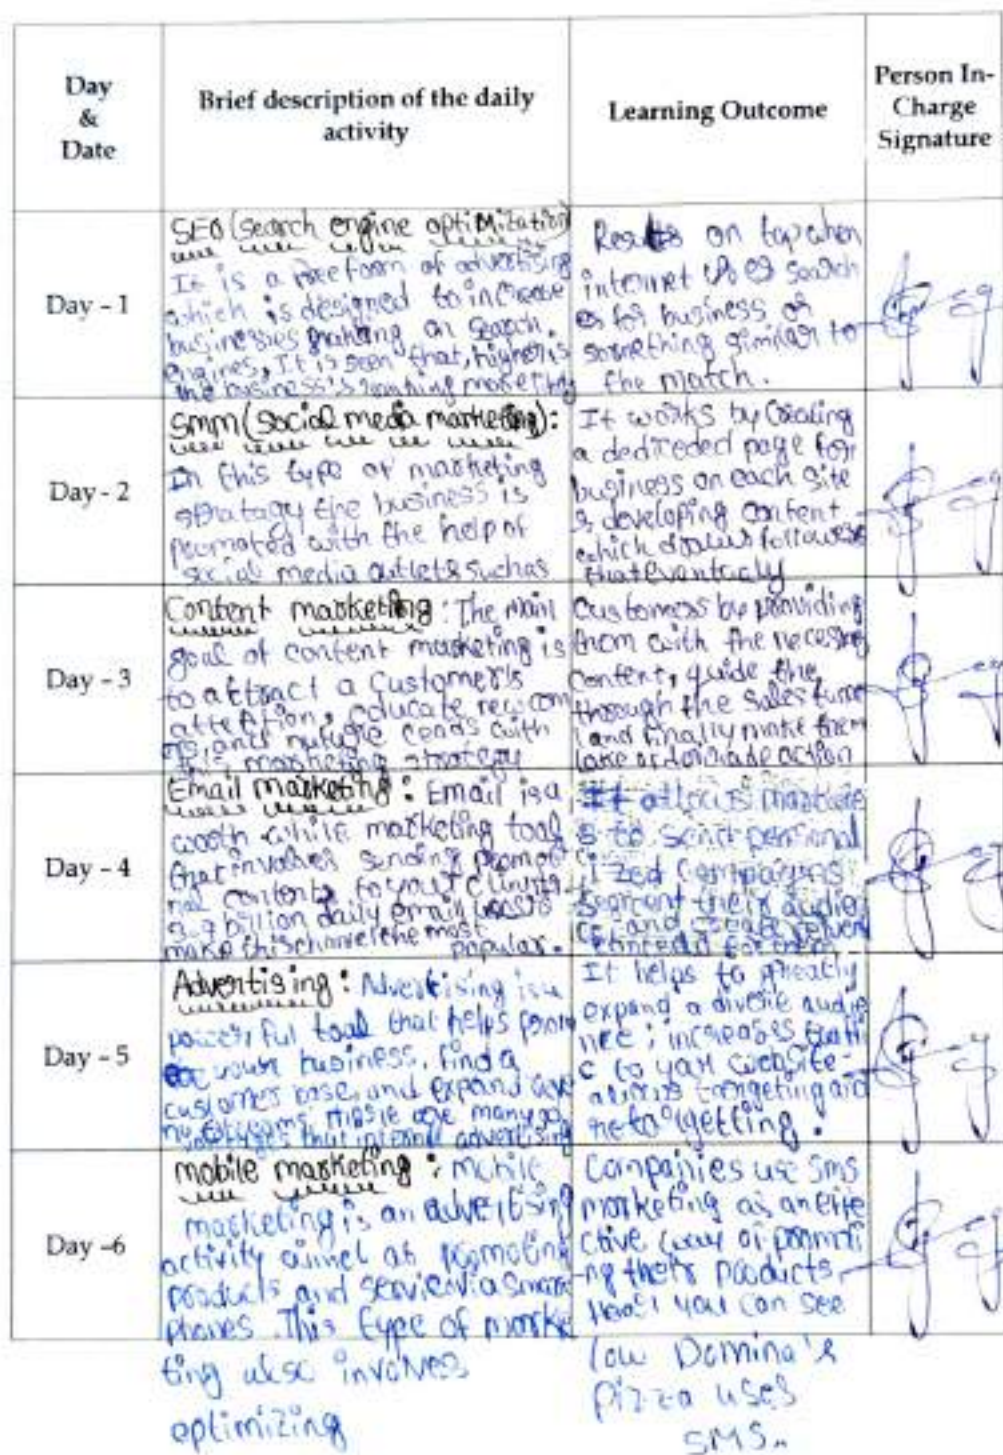 Day
&
Date
Brief description of the daily
activity
Learning Outcome
Person In-
Charge
Signature
Day - 1
SEO (search engine optimization)
It is a free form of advertising
which is designed to increase
businesses ranking on search
engines, It is seen that, higher is
the business's ranking marketing
Results on top when
internet search
for business or
something similar to
the match.
Day - 2
SMM (social media marketing):
In this type of marketing
stratagy the business is
promoted with the help of
social media outlets such as
It works by creating
a dediceded page for
business on each site
& developing content
which draws followers
that eventually
Day - 3
Content marketing : The main
goal of content marketing is
to attract a customer's
attention, educate
marketing strategy
Customers by providing
them with the necessry
content, guide the
through the sales funne
l and finally make them
action
Day - 4
Email marketing : Email is a
worth while marketing tool
that involves sending promot
nal contents to your clients.
3.9 billion daily email users
make this channel the most
popular.
It allows markete
s to send personal
ized campaigns
segment their audien
ce and create relevan
for them
Day - 5
Advertising : Advertising is a
powerful tool that helps prom
your business, find a
customer base, and expand
many
that internet advertising
It helps to greatly
expand a diverse audie
nce ; increases traffi
c to your website
allows targeting and
retargetting.
Day -6
mobile marketing : mobile
marketing is an advertising
activity aimed at promoting
products and services via smart
phones. This type of marke
ting also involves
optimizing
Companies use SMS
marketing as an effe
ctive way of promoti
ng their products.
Here you can see
how Domino's
pizza uses
SMS.